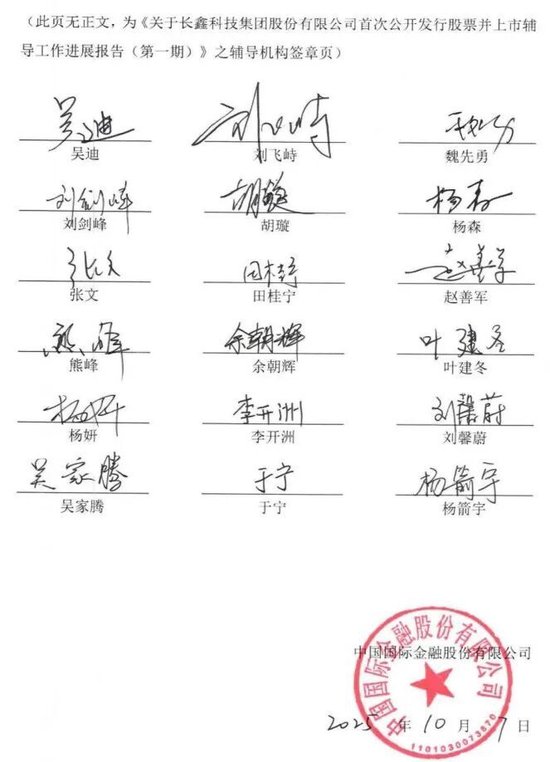 （此页无正文，为《关于长鑫科技集团股份有限公司首次公开发行股票并上市辅
导工作进展报告（第一期）》之辅导机构签章页）
吴迪 刘飞峙 魏先勇
吴迪 刘飞峙 魏先勇
刘剑峰 胡璇 杨森
刘剑峰 胡璇 杨森
张文 田桂宁 赵善军
张文 田桂宁 赵善军
熊峰 余朝辉 叶建冬
熊峰 余朝辉 叶建冬
杨妍 李开洲 刘馨蔚
杨妍 李开洲 刘馨蔚
吴家腾 于宁 杨箭宇
吴家腾 于宁 杨箭宇
中国国际金融股份有限公司
中国国际金融股份有限公司
2025 年 10 月 7 日
1101030073870